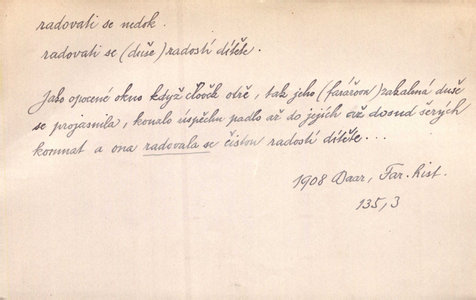 radovati se nedok.
radovati se (duše) radostí dítěte.
Jako opocené okno když člověk otře, tak jeho (farářova) zakalená duše
se projasnila, kouzlo úspěchu padlo až do jejích až dosud šerých
komnat a ona radovala se čistou radostí dítěte...
1908 Baar, Far. hist.
135,3